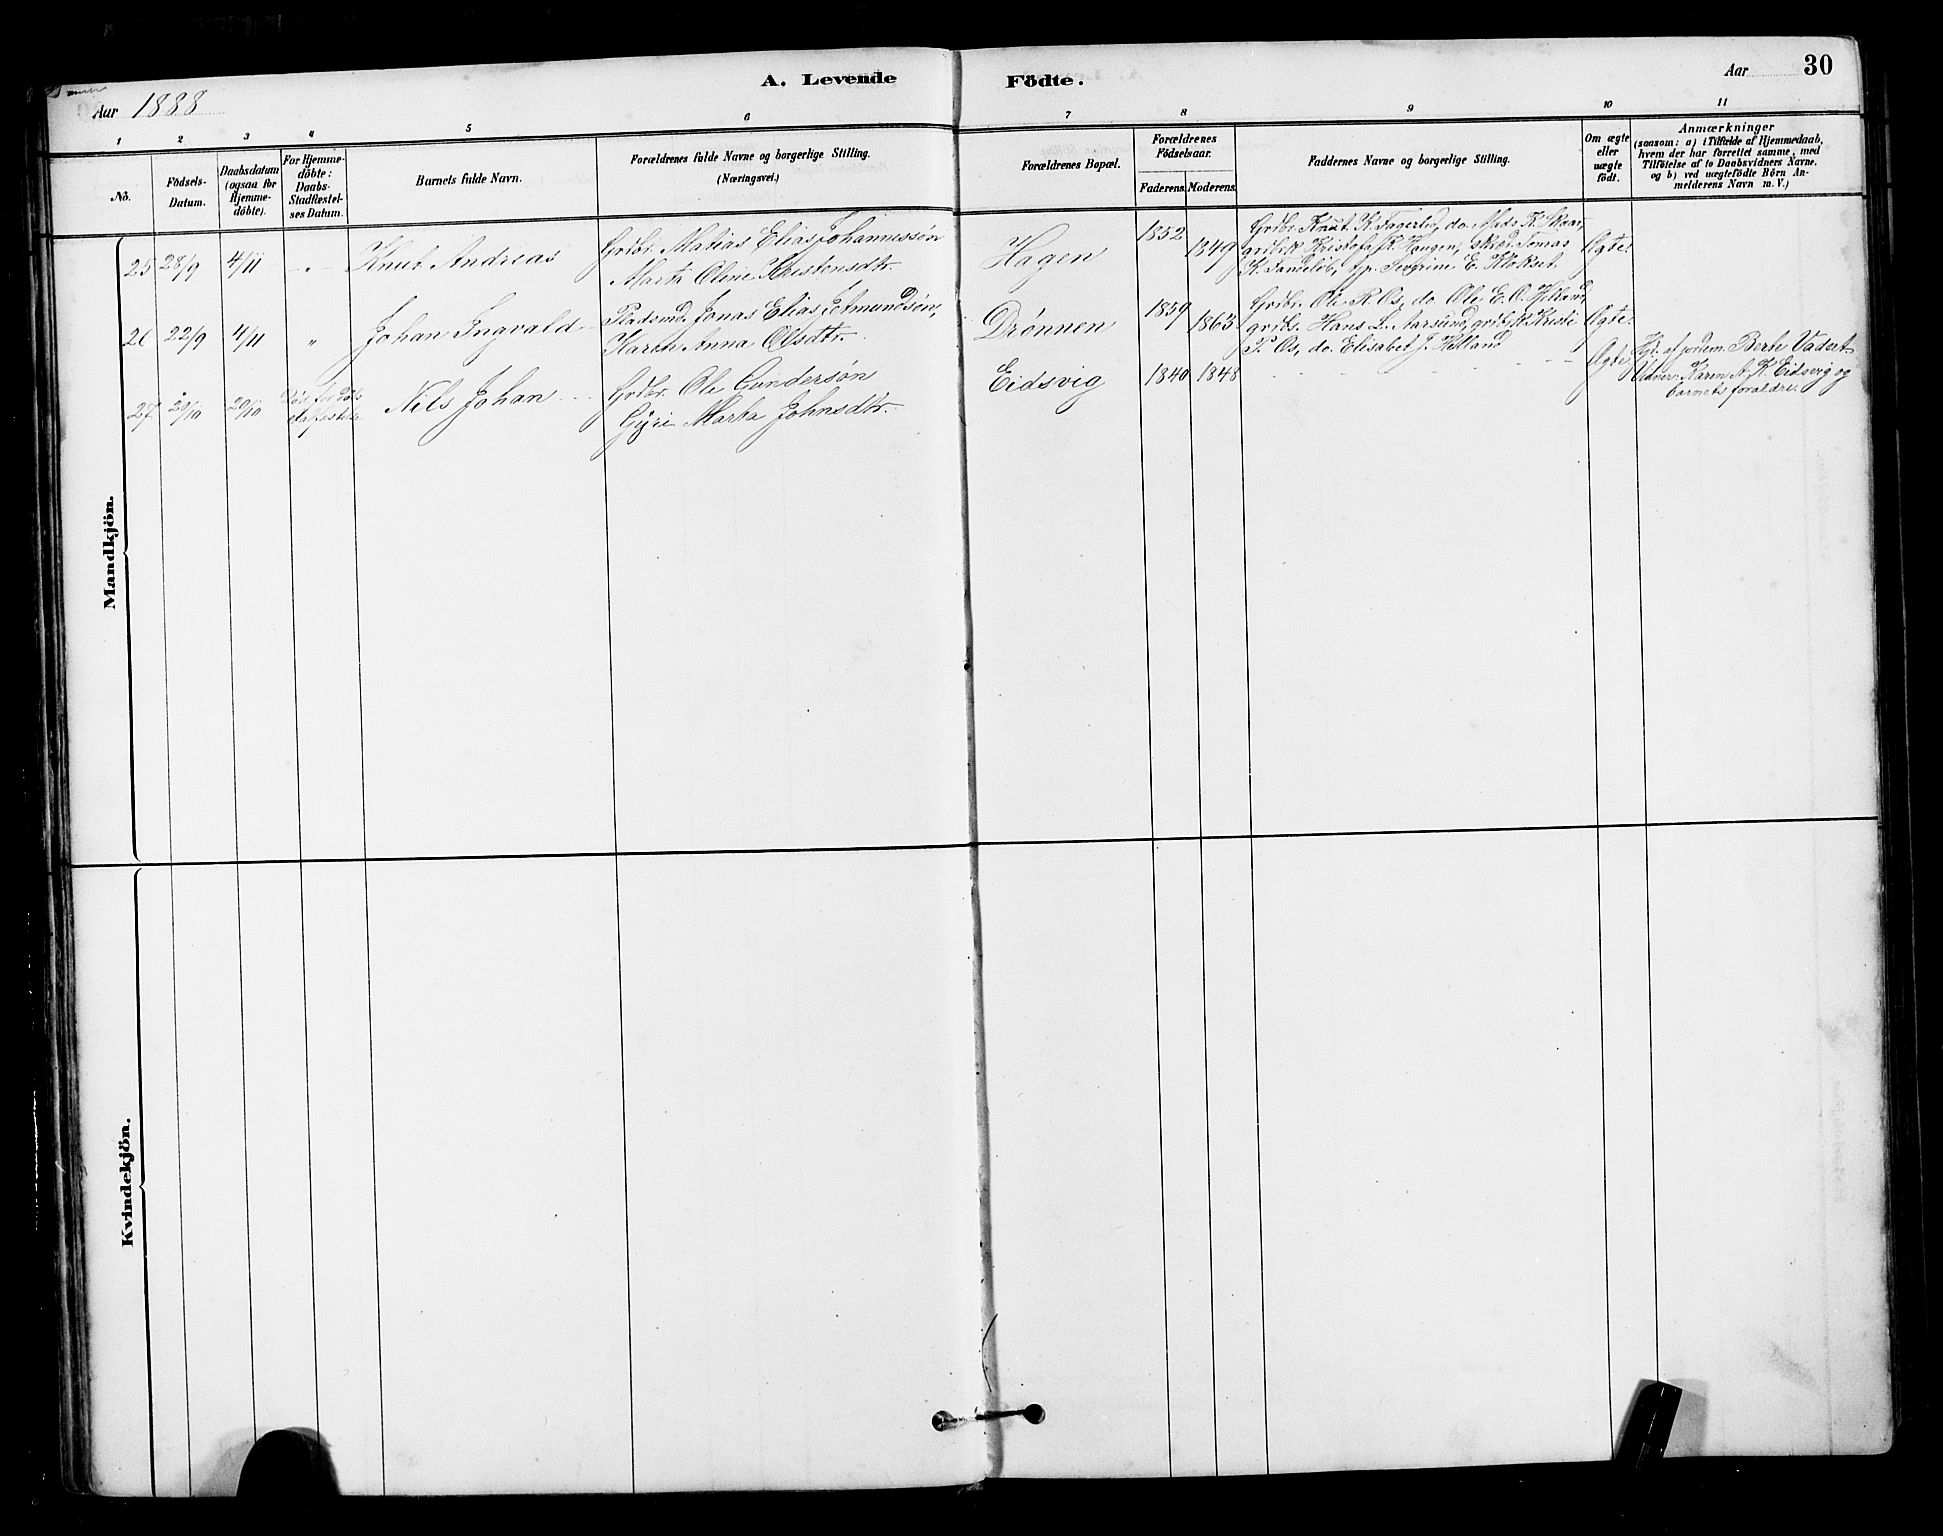 A. Levende Födte.
Aar 30
Aar 1888
1 2 3 4 5 6 7 8 9 10 11
No.
Födsels-
Datum.
Daabsdatum
(ogsaa for
Hjemme-
döbte).
For Hjemme-
döbte:
Daabs-
Stadfæstel-
ses Datum.
Barnets fulde Navn.
Forældrenes fulde Navne og borgerlige Stilling.
(Næringsvei.)
Forældrenes Bopæl.
Forældrenes
Födselsaar.
Faderens. Moderens.
Faddernes Navne og borgerlige Stilling.
Om ægte
eller
uægte
födt.
Anmærkninger
(saasom: a) i Tilfælde af Hjemmedaab,
hvem der har forrettet samme, med
Tilföielse af to Daabsvidners Navne.
og b) ved uægtefödte Börn An-
melderens Navn m. V.)
Mandkjön.
25 28/9 4/11 - " - Knut Andreas
Grdbr. Matias Elias Johannessøn
Marta Oline Kristensdtr.
Hagen 1852 1849
Grdbr. Knut K. Fagerli, do. Mads K. Skaar,
grdbrk. Kristofa R. Haugen, skræd. Tomas
K. Tandeløb, tp. Sevrine E. Klokset
Ægte.
26 22/9 4/11 " Johan Ingvald
Pladsmd. Jonas Elias Edmundsøn,
Karen Anna Olsdtr.
Drønnen 1859 1863
Grdbr. Ole R. Os, do. Ole E. O. Helland,
grdbr. Hans L. Aarsund, grdbrk. Kristi
P. Os, do. Elisabet J. Helland
Ægte.
27 20/10 20/10 Nils Johan
Grdbr. Ole Gundersøn
Gjri Marta Johnsdtr.
Eidsvig 1840 1848
Ægte
Hjd. af jordem. Berte Vadset
Vidner: Karen A. K. Eidsvig og
barnets forældre.
Kvindekjön.